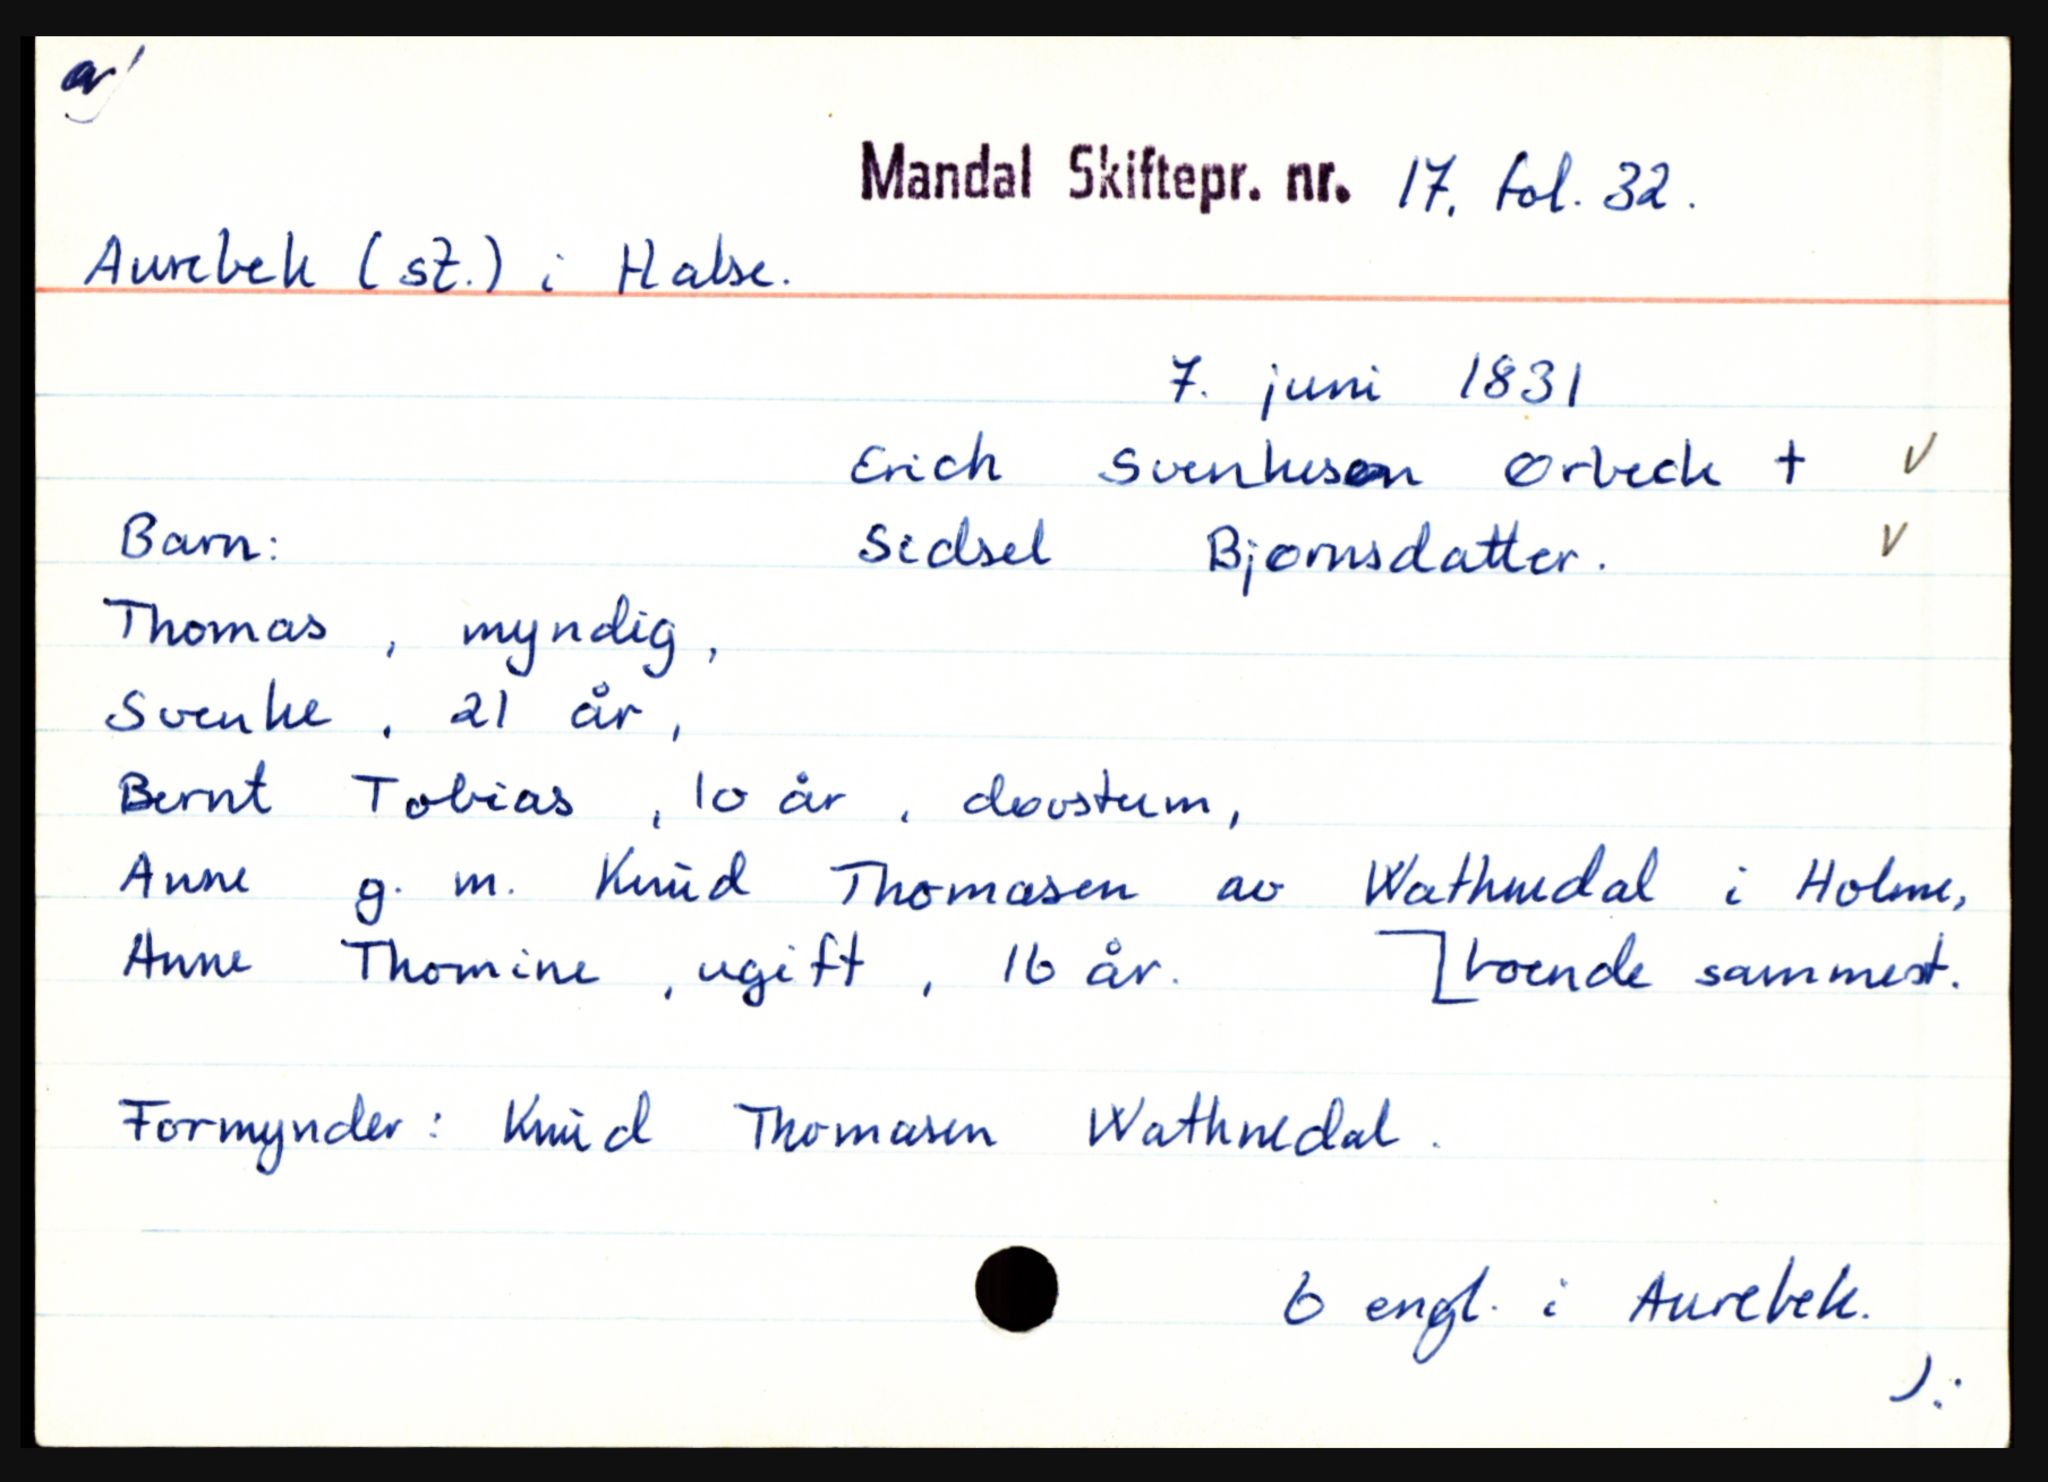 Mandal Skiftepr. nr. 17. fol. 32.
Aurebek (st.) i Halse.
7. juni 1831
Erich Svenkesen Ørbeck + v
Barn: Sidsel Bjørnsdatter. v
Thomas, myndig,
Svenke, 21 år,
Bernt Tobias, 10 år, døvstum,
Anne g. m. Knud Thomasen av Wathnedal i Holme,
Anne Thomine, ugift, 16 år. boende sammest.
Formynder: Knud Thomasen Wathnedal.
6 engl. i Aurebek.